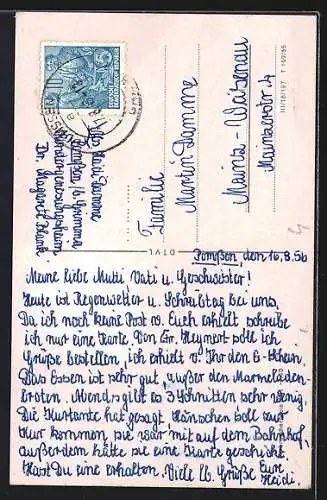 Pomßen, den 16.8.56
Meine liebe Mutti Vati u. Geschwister!
Heute ist Regenwetter u. Schreibtag bei uns.
Da ich noch keine Post v. Euch erhielt schreibe
ich nur eine Karte. Von Gr. Heynert soll ich
Grüße bestellen, ich erhielt v. Ihr den 6-Schein.
Das Essen ist sehr gut, außer den Marmeladen-
broten. Abends gibt es 3 Schnitten sehr wenig.
Die Kurtante hat gesagt, Hänschen soll zur
Kur kommen, sie war mit auf dem Bahnhof,
außerdem hätte sie eine Karte geschickt.
Hast Du eine erhalten. Viele lb. Grüße Eure
Heidi.
Abs. Heidi Damme
Pomßen b/ Grimma
Kindergenesungsheim
Dr. Margarete Blank
Familie
Martin Damme
Mainz-Weisenau
Mainzerstr. 4
III/18/197 T 159/56
10